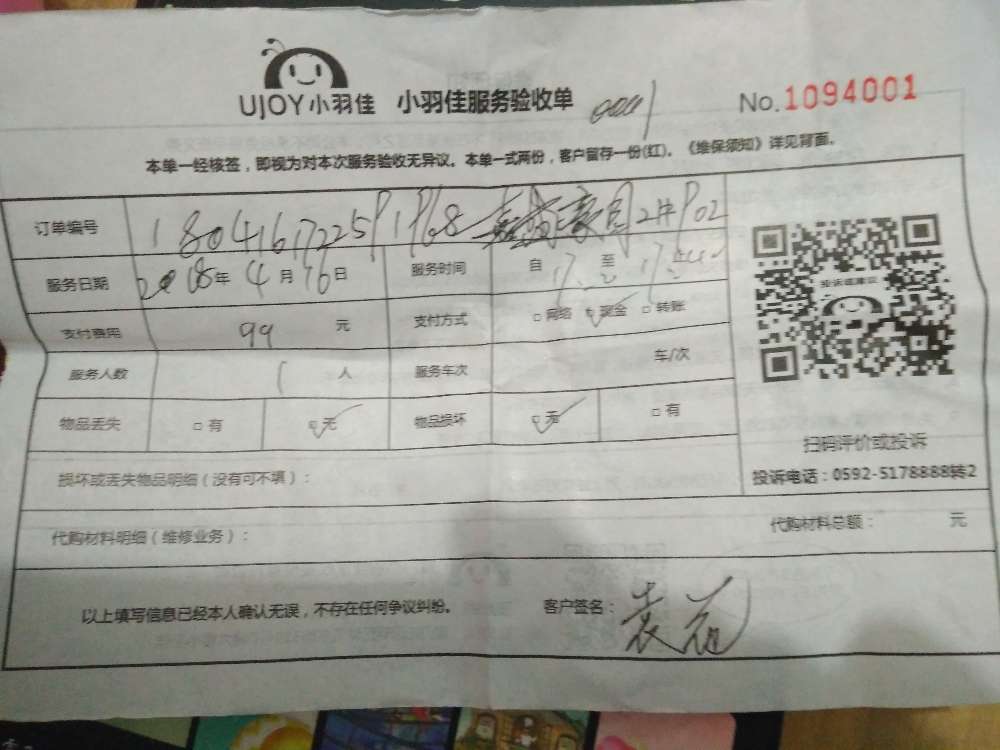 UJOY小羽佳 小羽佳服务验收单 No.1094001
本单一经核签，即视为对本次服务验收无异议。本单一式两份，客户留存一份(红)。《维保须知》详见背面。
订单编号 2# 902
服务日期 2018年4月16日 服务时间 自 17 至 17
支付费用 99 元 支付方式 □网络 □现金 □转账
服务人数 1 人 服务车次 车/次
物品丢失 □有 □无 物品损坏 □无 □有
扫码评价或投诉
投诉电话：0592-5178888转2
损坏或丢失物品明细（没有可不填）：
代购材料明细（维修业务）： 代购材料总额： 元
以上填写信息已经本人确认无误，不存在任何争议纠纷。 客户签名：